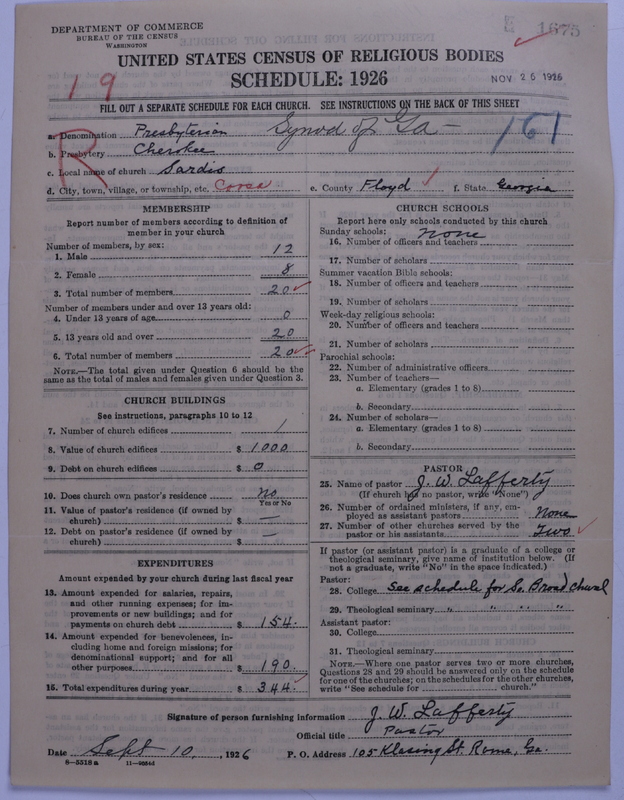 DEPARTMENT OF COMMERCE
BUREAU OF THE CENSUS
WASHINGTON
1675
UNITED STATES CENSUS OF RELIGIOUS BODIES
SCHEDULE: 1926
NOV 26 1926
19
FILL OUT A SEPARATE SCHEDULE FOR EACH CHURCH. SEE INSTRUCTIONS ON THE BACK OF THIS SHEET
R
161
a. Denomination Presbyterian Synod of Ga
b. Presbytery Cherokee
c. Local name of church Sardis
d. City, town, village, or township, etc. Coosa e. County Floyd f. State Georgia
MEMBERSHIP
Report number of members according to definition of
member in your church
Number of members, by sex:
1. Male 12
2. Female 8
3. Total number of members 20
Number of members under and over 13 years old:
4. Under 13 years of age 0
5. 13 years old and over 20
6. Total number of members 20
NOTE.—The total given under Question 6 should be
same as the total of males and females given under Question 3.
CHURCH BUILDINGS
See instructions, paragraphs 10 to 12
7. Number of church edifices 1
8. Value of church edifices $ 1000
9. Debt on church edifices $ 0
10. Does church own pastor's residence No
Yes or No
11. Value of pastor's residence (if owned by
church) $ —
12. Debt on pastor's residence (if owned by
church) $ —
EXPENDITURES
Amount expended by your church during last fiscal year
13. Amount expended for salaries, repairs,
and other running expenses; for im-
provements or new buildings; and for
payments on church debt $ 154.
14. Amount expended for benevolences, in-
cluding home and foreign missions; for
denominational support; and for all
other purposes $ 190.
15. Total expenditures during year $ 344.
CHURCH SCHOOLS
Report here only schools conducted by this church
Sunday schools: None
16. Number of officers and teachers
17. Number of scholars
Summer vacation Bible schools:
18. Number of officers and teachers
19. Number of scholars
Week-day religious schools:
20. Number of officers and teachers
21. Number of scholars
Parochial schools:
22. Number of administrative officers
23. Number of teachers—
a. Elementary (grades 1 to 8)
b. Secondary
24. Number of scholars—
a. Elementary (grades 1 to 8)
b. Secondary
PASTOR
25. Name of pastor J. W. Lafferty
(If church has no pastor, write "None")
26. Number of ordained ministers, if any, em-
ployed as assistant pastors None
27. Number of other churches served by the
pastor or his assistants Two
If pastor (or assistant pastor) is a graduate of a college or
theological seminary, give name of institution below. (If
not a graduate, write "No" in the space indicated.)
Pastor:
28. College See schedule for So. Broad Church
29. Theological seminary " " " "
Assistant pastor:
30. College
31. Theological seminary
NOTE.—Where one pastor serves two or more churches,
Questions 28 and 29 should be answered only on the schedule
for one of the churches; on the schedules for the other churches,
write "See schedule for ............ church."
Signature of person furnishing information J. W. Lafferty
Official title Pastor
Date Sept 10, 1926 P. O. Address 105 Klasing St. Rome, Ga.
8—5518 a